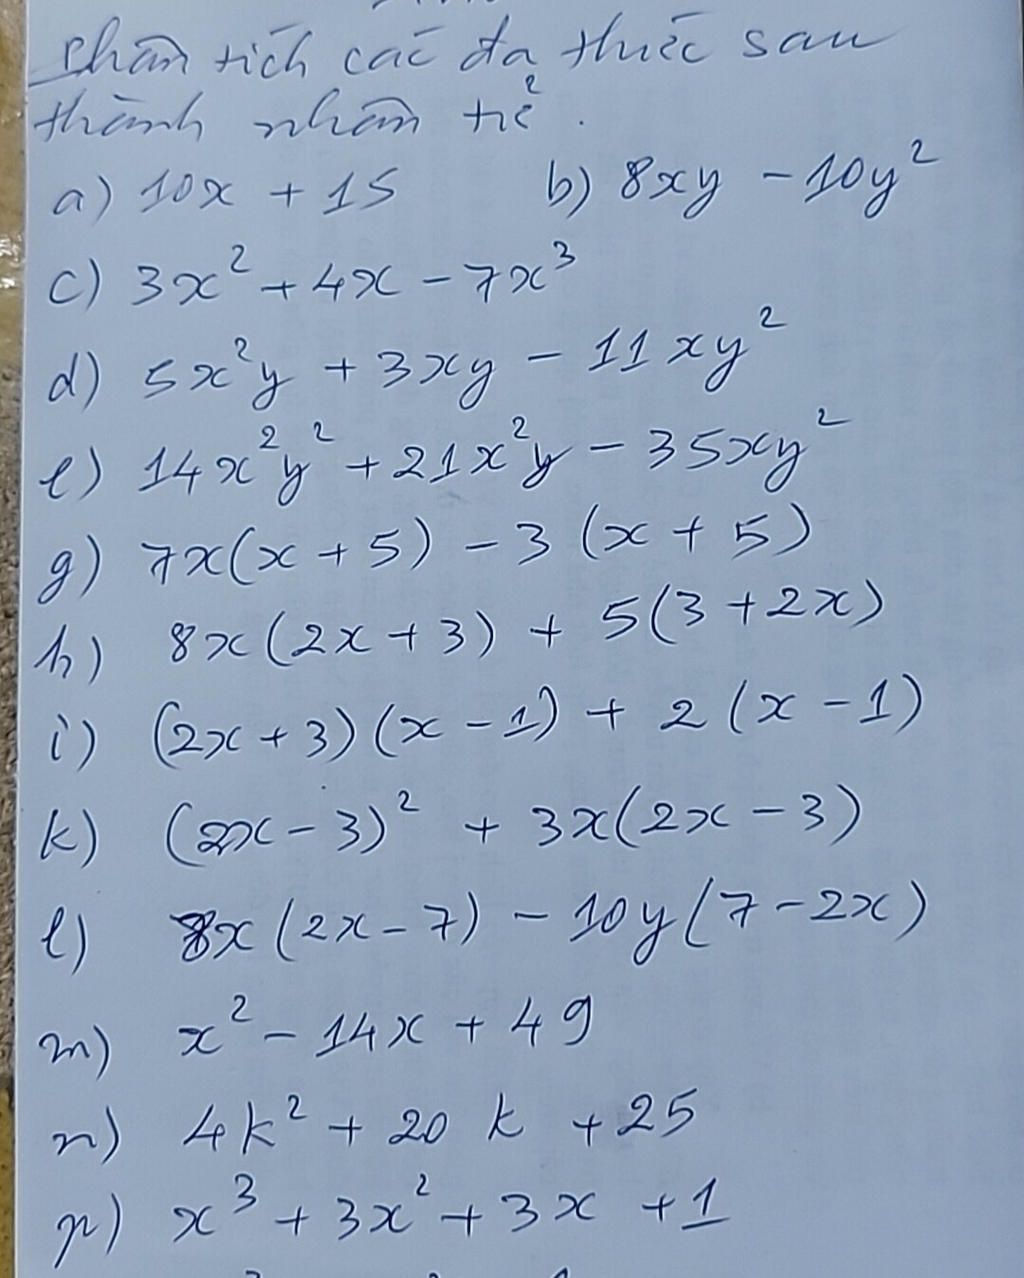 Phân tích các đa thức sau
thành nhân tử.
a) 10x + 15 b) 8xy - 10y²
c) 3x² + 4x - 7x³
d) 5x²y + 3xy - 11xy²
e) 14x²y² + 21x²y - 35xy²
g) 7x(x + 5) - 3(x + 5)
h) 8x(2x + 3) + 5(3 + 2x)
i) (2x + 3)(x - 1) + 2(x - 1)
k) (2x - 3)² + 3x(2x - 3)
l) 8x(2x - 7) - 10y(7 - 2x)
m) x² - 14x + 49
n) 4k² + 20k + 25
p) x³ + 3x² + 3x + 1